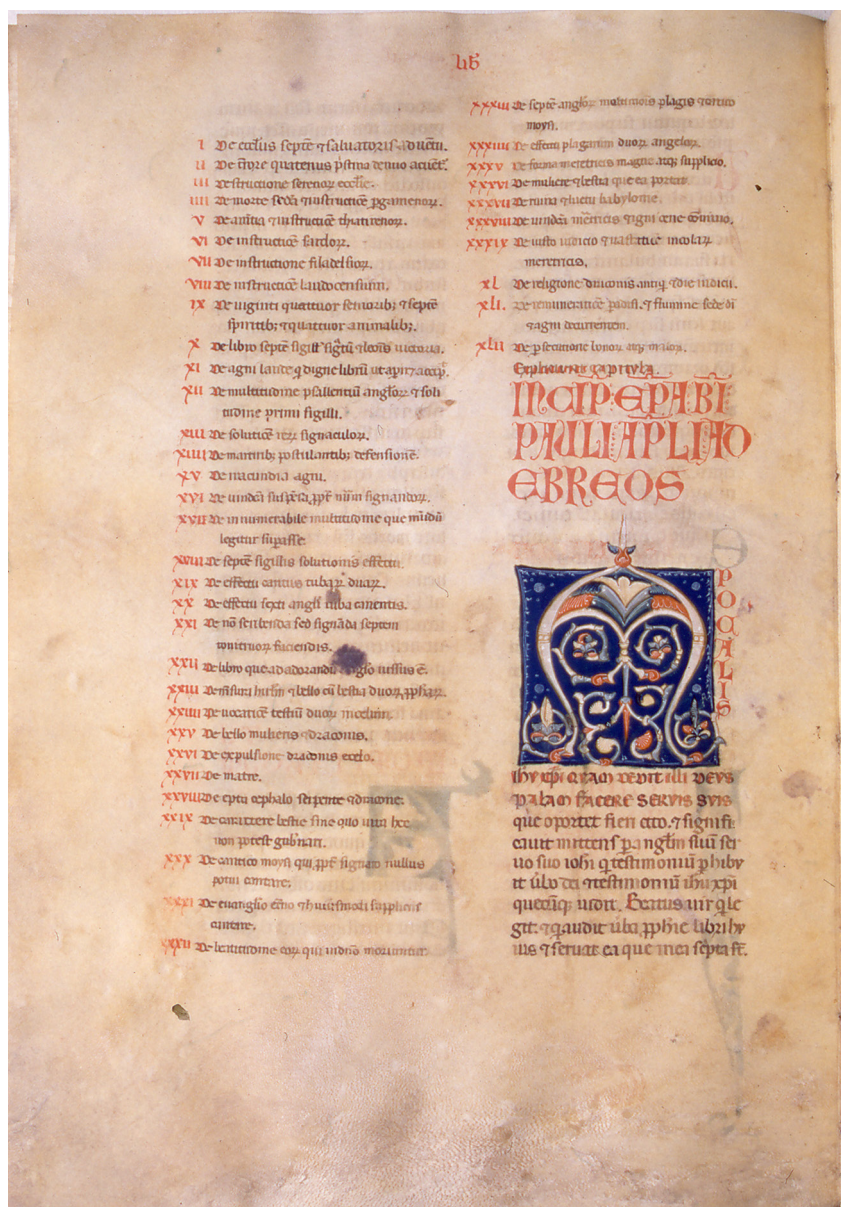 lib
I De eccliis septe ⁊ saluatoris aduetu.
II De timore quatenus pstina denuo
III Destructione serenor ecclie.
IIII De morte ⁊ instructioe pgamenor.
V De ⁊ instructioe thiatirenor.
VI De instructioe sardor.
VII De instructione filadelfior.
VIII De instructioe laudocensium.
IX De uiginti quattuor seniorib; ⁊ septe
spiritib; ⁊ quattuor animalib;.
X De libro septe sigill ⁊ leois uictoria.
XI De agni laude q digne libru ut apiat accep.
XII De multitudine psallentiu anglor ⁊ soli
tudine primi sigilli.
XIII De solutioe signaculor.
XIIII De martirib; postulantib; defensione.
XV De iracundia agni.
XVI De uindicta suspensa ppt signandor.
XVII De innumerabile multitudine que mudu
legitur supasse.
XVIII De septe sigillis solutionis effectu.
XIX De effectu cantus tubar duar.
XX De effectu sexti angli tuba canentis.
XXI De no scribenda sed signada septem
tonitruor faciendis.
XXII De libro que ad adorandu anglo iussus e.
XXIII De ⁊ bello cu bestia duor pphar.
XXIIII De uocatioe testiu duor in celum.
XXV De bello mulieris ⁊ draconis.
XXVI De expulsione draconis e celo.
XXVII De matre.
XXVIII De cephalo serpente ⁊ dracone.
XXIX De caractere bestie sine quo uita hec
non potest gubnari.
XXX De cantico moysi qui ppt signato nullus
potui cantare.
XXXI De euanglio etno ⁊ huiusmodi supplicii
cantene.
XXXII De beatitudine eor qui in dno moriuntur.
XXXIII De septe anglor plagis ⁊ cantico
moysi.
XXXIIII De effectu plagarum duor angelor.
XXXV De forma meretricis magne atq; supplicio.
XXXVI De muliere ⁊ bestia que ea portat.
XXXVII De ruina ⁊ luctu babylonie.
XXXVIII De uindicta meretricis ⁊ agni cene
XXXIX De iusto iudicio ⁊ uastatioe incolar
meretricis.
XL De religione draconis antiqi ⁊ die iudicii.
XLI. De remuneratioe padisi. ⁊ flumine sede di
⁊ agni decurrentem.
XLII De psecutione bonor atq; malor.
Expliciunt capitula.
INCIP EPA BI
PAULI APLI AD
EBREOS
APOCALIS
ihu xpi QUAM DEDIT illi DEUS
palam FACERE SERUIS SUIS
que oportet fieri cito. ⁊ signifi
cauit mittens p anglm suu ser
uo suo iohi q testimoniu phibu
it ubo dei ⁊ testimoniu ihu xpi
quecuq; uidit. Beatus uir q le
git. ⁊ q audit uba pphie libri hu
ius ⁊ seruat ea que in ea scpta st.